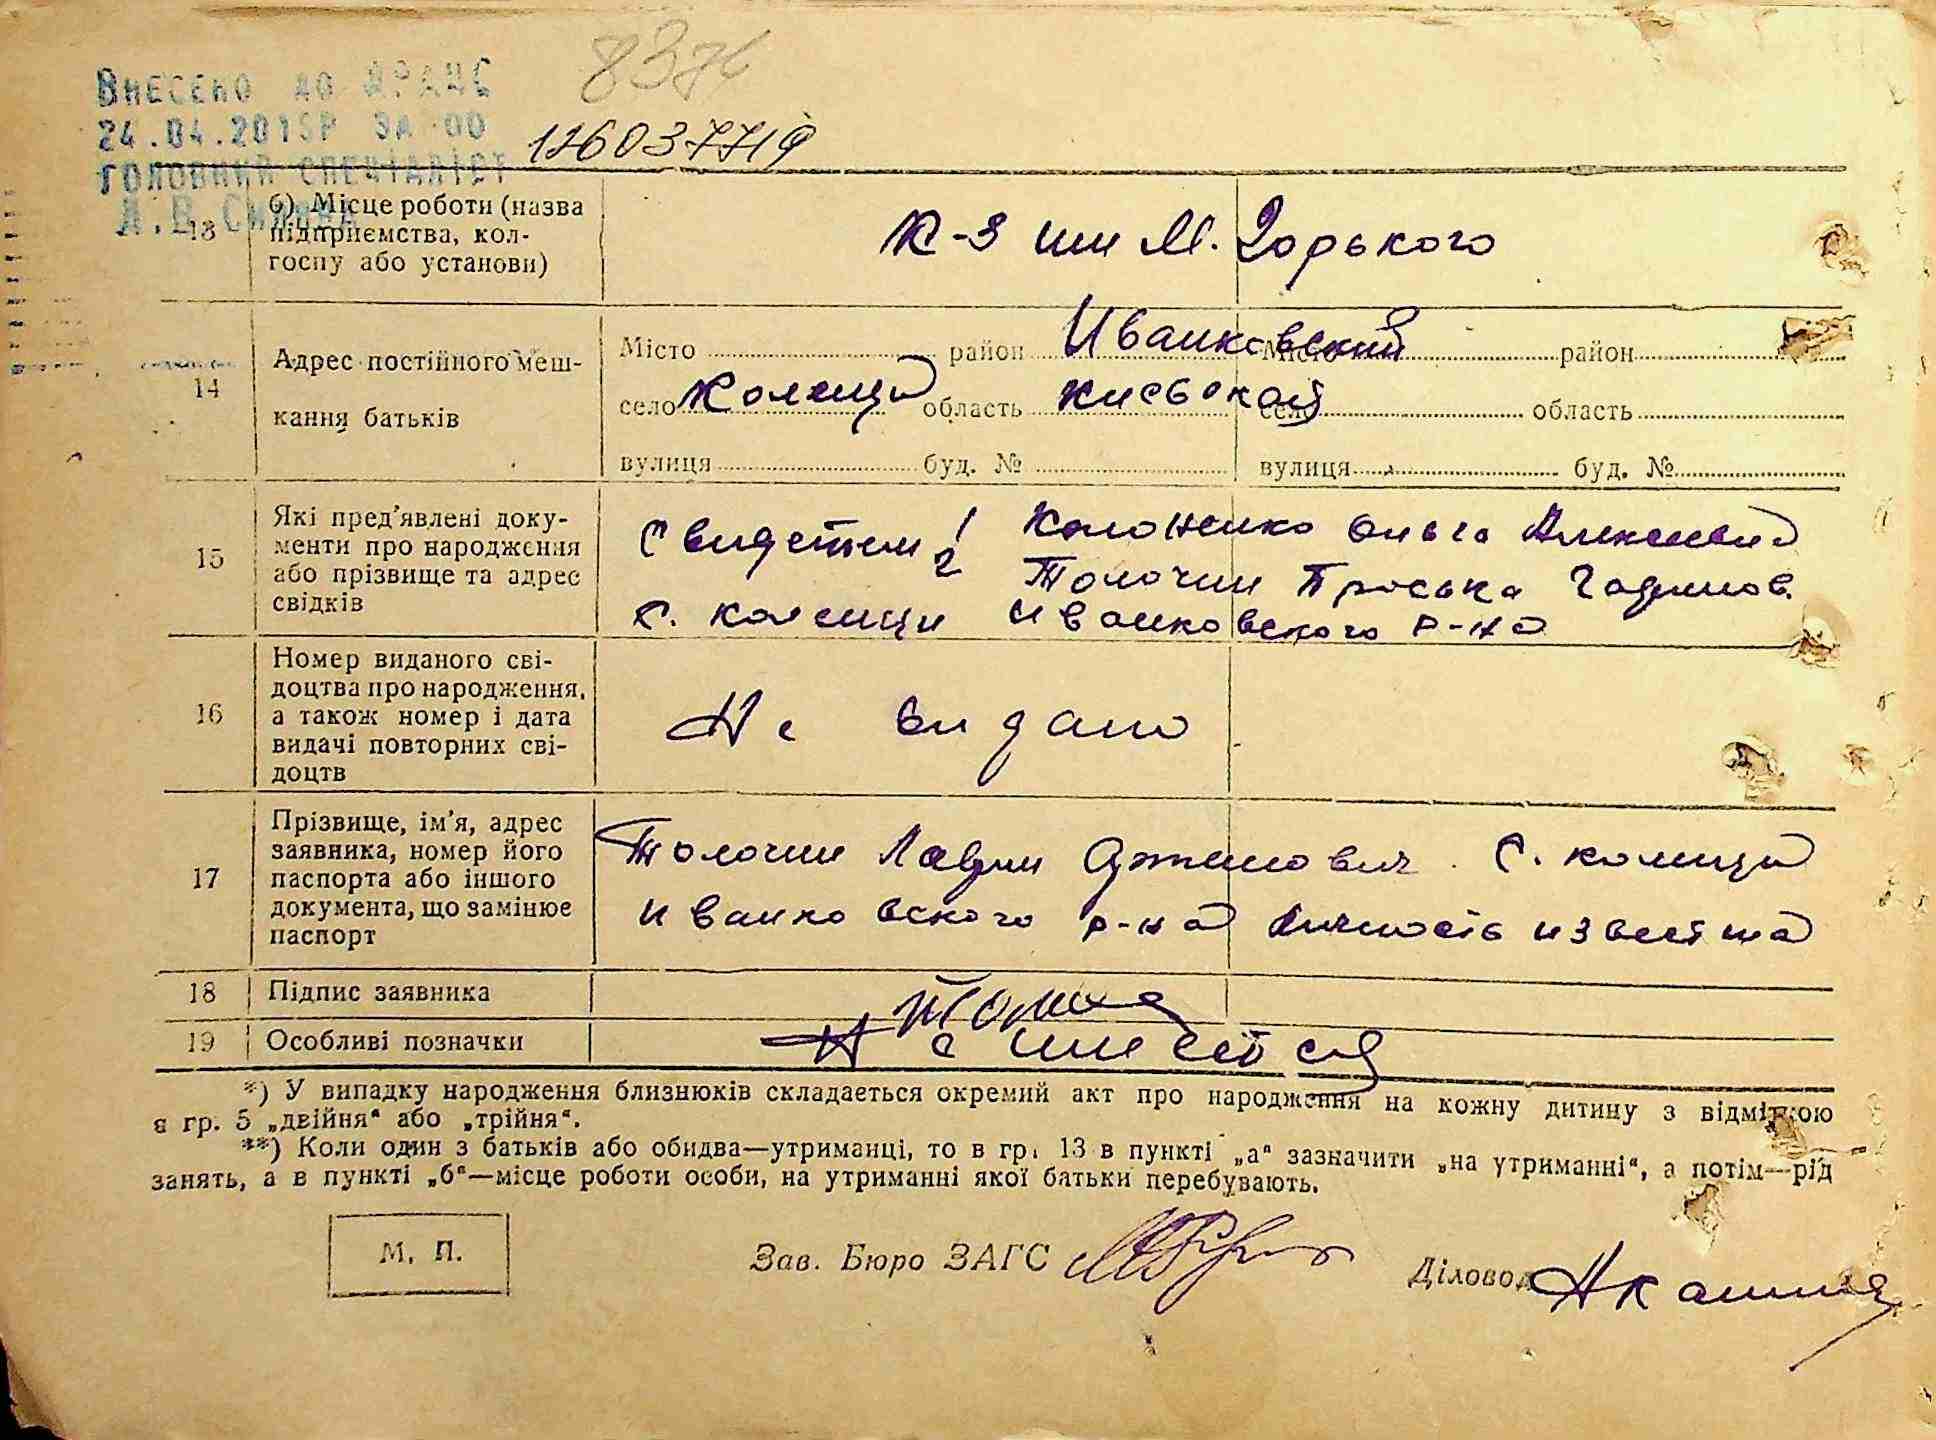 837
ВНЕСЕНО ДО ДРАЦС
24.04.2015Р ЗА 00
ГОЛОВНИЙ СПЕЦІАЛІСТ
12603771
13
б) Місце роботи (назва
підприємства, кол-
госпу або установи)
К-з им М. Горького
14
Адрес постійного меш-
кання батьків
Місто район Иванковский Місто район
село Коленци область Киевской село область
вулиця буд. № вулиця буд. №
15
Які пред'явлені доку-
менти про народження
або прізвище та адрес
свідків
Свидетели 1 Ольга Алексеевна
2 Толочин Проська
с. Коленци Иванковского р-на
16
Номер виданого сві-
доцтва про народження,
а також номер і дата
видачі повторних сві-
доцтв
Не видано
17
Прізвище, ім'я, адрес
заявника, номер його
паспорта або іншого
документа, що замінює
паспорт
Толочин с. Коленци
Иванковского р-на личность известна
18
Підпис заявника
19
Особливі позначки
Не имеется
*) У випадку народження близнюків складається окремий акт про народження на кожну дитину з відміткою
в гр. 5 „двійня“ або „трійня“.
**) Коли один з батьків або обидва—утриманці, то в гр. 13 в пункті „а“ зазначити „на утриманні“, а потім—рід
занять, а в пункті „б“—місце роботи особи, на утриманні якої батьки перебувають.
М. П.
Зав. Бюро ЗАГС
Діловод